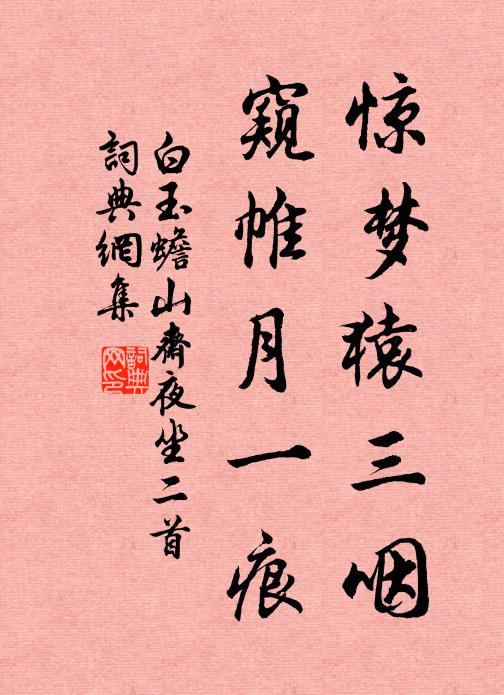 惊梦猿三咽
窥帷月一痕
白玉蟾山斋夜坐二首
詞典網集
詞典网印